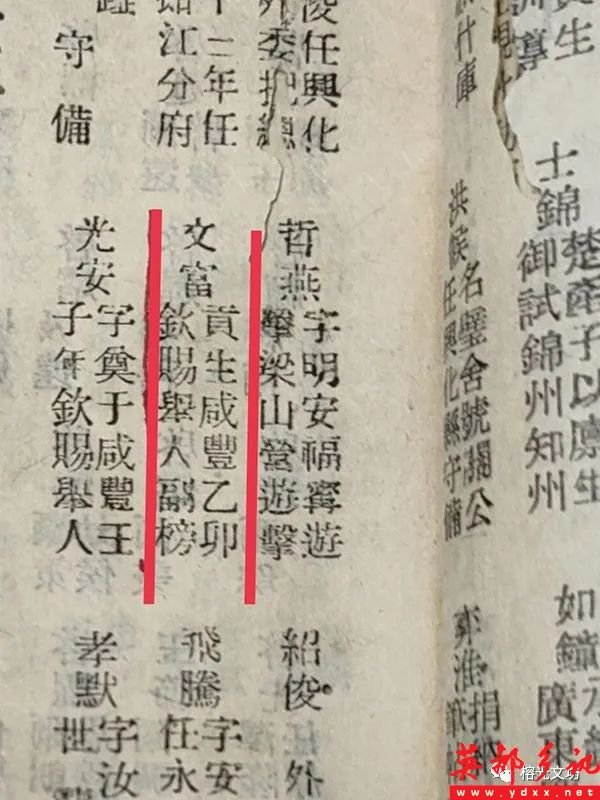 貢生
訓導
士錦
子以廩生
御試錦州知州
如鐘
廣東
什庫
洪侯
名璧舍號關公
任興化縣守備
捐
俊任興化
外委把總
十二年任
江分府
守備
哲燕
字明安福寧遊
擊梁山營遊擊
文富
貢生咸豐乙卯
欽賜舉人副榜
光安
字奠于咸豐壬
子年欽賜舉人
紹俊
外
飛騰
字安
任永
孝默
字汝
世
榕光文坊
英都乡讯
www.ydxx.net